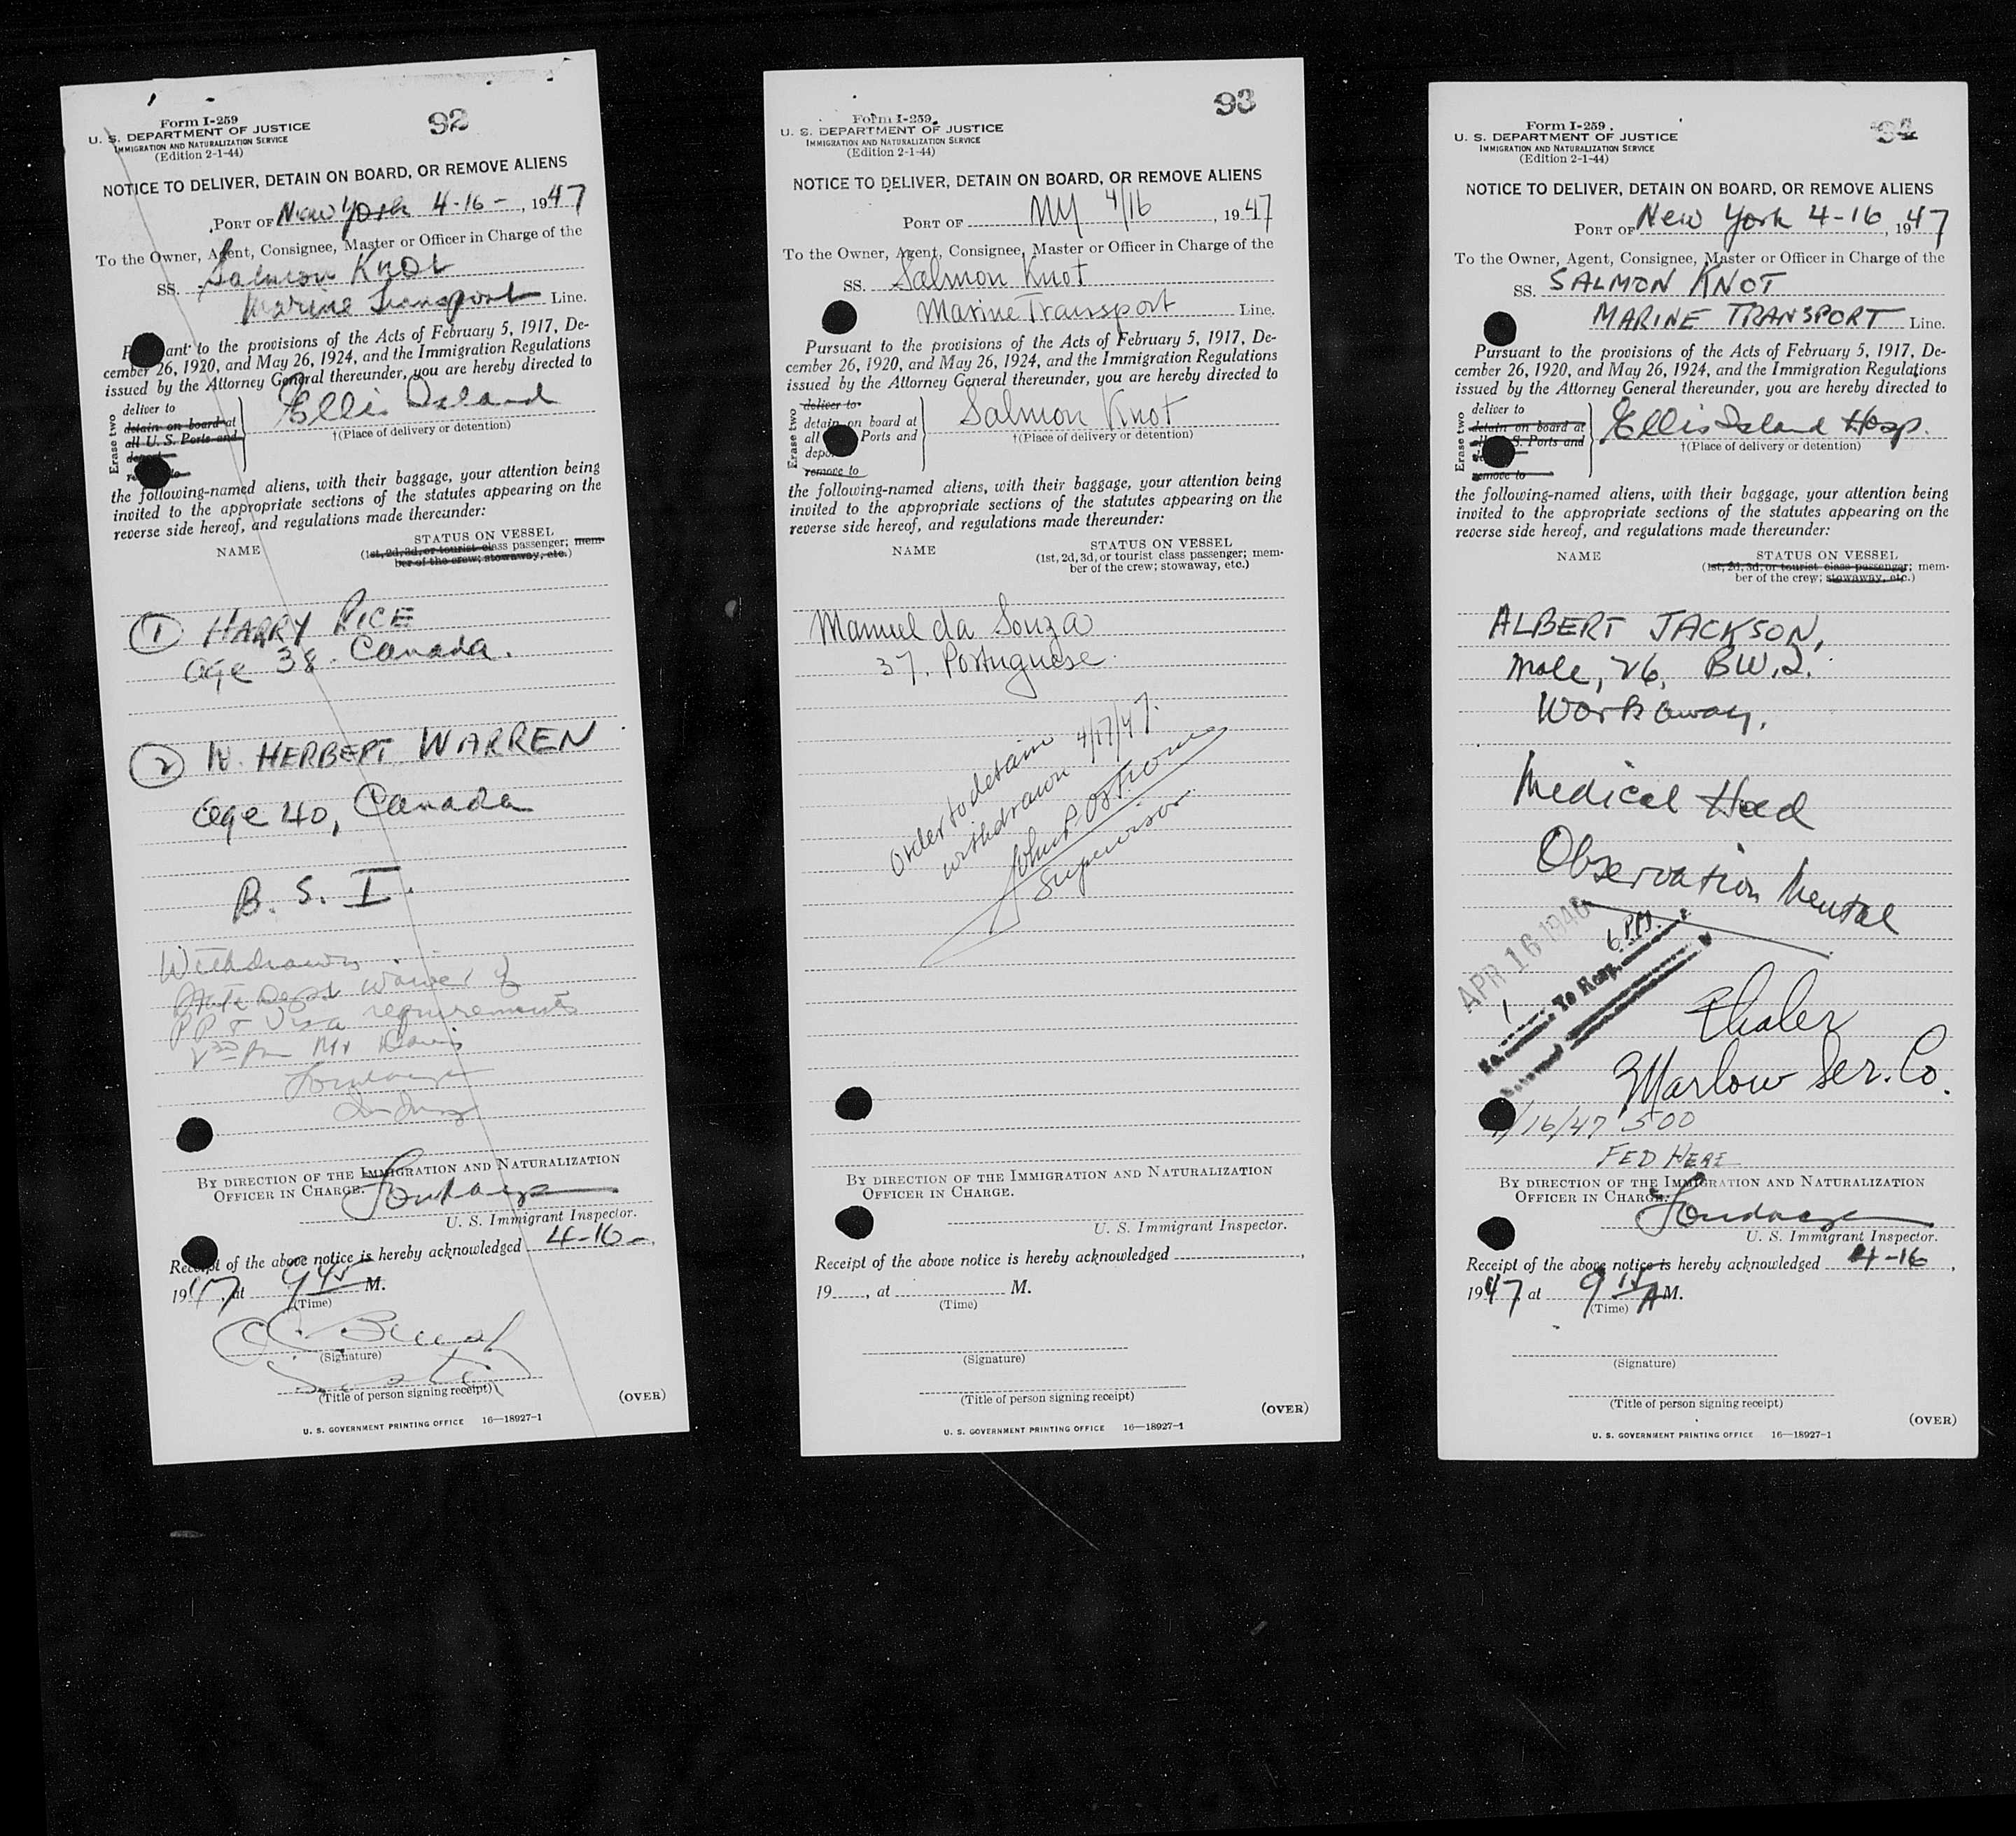 Form I-259
U. S. DEPARTMENT OF JUSTICE
IMMIGRATION AND NATURALIZATION SERVICE
(Edition 2-1-44)
92
NOTICE TO DELIVER, DETAIN ON BOARD, OR REMOVE ALIENS
PORT OF New York 4-16-, 1947
To the Owner, Agent, Consignee, Master or Officer in Charge of the
SS. Salmon Knot
Marine Transport Line.
ant to the provisions of the Acts of February 5, 1917, De-
cember 26, 1920, and May 26, 1924, and the Immigration Regulations
issued by the Attorney General thereunder, you are hereby directed to
Erase two
deliver to
detain on board at
all U. S. Ports and
deport
Ellis Island
†(Place of delivery or detention)
the following-named aliens, with their baggage, your attention being
invited to the appropriate sections of the statutes appearing on the
reverse side hereof, and regulations made thereunder:
NAME
STATUS ON VESSEL
(1st, 2d, 3d, or tourist class passenger; mem-
ber of the crew; stowaway, etc.)
1 HARRY RICE
age 38. Canada.
2 W. HERBERT WARREN
age 40, Canada
B. S. I.
Withdrawn
State Dept waiver of
PP & Visa requirements
Mr Davis
BY DIRECTION OF THE IMMIGRATION AND NATURALIZATION
OFFICER IN CHARGE.
U. S. Immigrant Inspector.
Receipt of the above notice is hereby acknowledged 4-16-,
1947, at 9 45 M.
(Time)
(Signature)
(Title of person signing receipt)
(OVER)
U. S. GOVERNMENT PRINTING OFFICE 16—18927-1
Form I-259
U. S. DEPARTMENT OF JUSTICE
IMMIGRATION AND NATURALIZATION SERVICE
(Edition 2-1-44)
93
NOTICE TO DELIVER, DETAIN ON BOARD, OR REMOVE ALIENS
PORT OF NY 4/16, 1947
To the Owner, Agent, Consignee, Master or Officer in Charge of the
SS. Salmon Knot
Marine Transport Line.
Pursuant to the provisions of the Acts of February 5, 1917, De-
cember 26, 1920, and May 26, 1924, and the Immigration Regulations
issued by the Attorney General thereunder, you are hereby directed to
Erase two
deliver to
detain on board at
all Ports and
depo
remove to
Salmon Knot
†(Place of delivery or detention)
the following-named aliens, with their baggage, your attention being
invited to the appropriate sections of the statutes appearing on the
reverse side hereof, and regulations made thereunder:
NAME
STATUS ON VESSEL
(1st, 2d, 3d, or tourist class passenger; mem-
ber of the crew; stowaway, etc.)
Manuel da Souza
37. Portuguese
Order to detain
withdrawn 4/17/47.
John P.
Supervisor.
BY DIRECTION OF THE IMMIGRATION AND NATURALIZATION
OFFICER IN CHARGE.
U. S. Immigrant Inspector.
Receipt of the above notice is hereby acknowledged,
19, at M.
(Time)
(Signature)
(Title of person signing receipt)
(OVER)
U. S. GOVERNMENT PRINTING OFFICE 16—18927-1
Form I-259
U. S. DEPARTMENT OF JUSTICE
IMMIGRATION AND NATURALIZATION SERVICE
(Edition 2-1-44)
94
NOTICE TO DELIVER, DETAIN ON BOARD, OR REMOVE ALIENS
PORT OF New York 4-16, 1947
To the Owner, Agent, Consignee, Master or Officer in Charge of the
SS. SALMON KNOT
MARINE TRANSPORT Line.
Pursuant to the provisions of the Acts of February 5, 1917, De-
cember 26, 1920, and May 26, 1924, and the Immigration Regulations
issued by the Attorney General thereunder, you are hereby directed to
Erase two
deliver to
detain on board at
S. Ports and
remove to
Ellis Island Hosp.
†(Place of delivery or detention)
the following-named aliens, with their baggage, your attention being
invited to the appropriate sections of the statutes appearing on the
reverse side hereof, and regulations made thereunder:
NAME
STATUS ON VESSEL
(1st, 2d, 3d, or tourist class passenger; mem-
ber of the crew; stowaway, etc.)
ALBERT JACKSON,
Male, 26, B.W.I.
Workaway.
Medical Hold
Observation Mental
APR 16 1946
6 PM
1
No. To Hosp.
Thaler
Marlow Ser. Co.
4/16/47 500
FED HERE
BY DIRECTION OF THE IMMIGRATION AND NATURALIZATION
OFFICER IN CHARGE.
U. S. Immigrant Inspector.
Receipt of the above notice is hereby acknowledged 4-16,
1947, at 9 15 AM.
(Time)
(Signature)
(Title of person signing receipt)
(OVER)
U. S. GOVERNMENT PRINTING OFFICE 16—18927-1